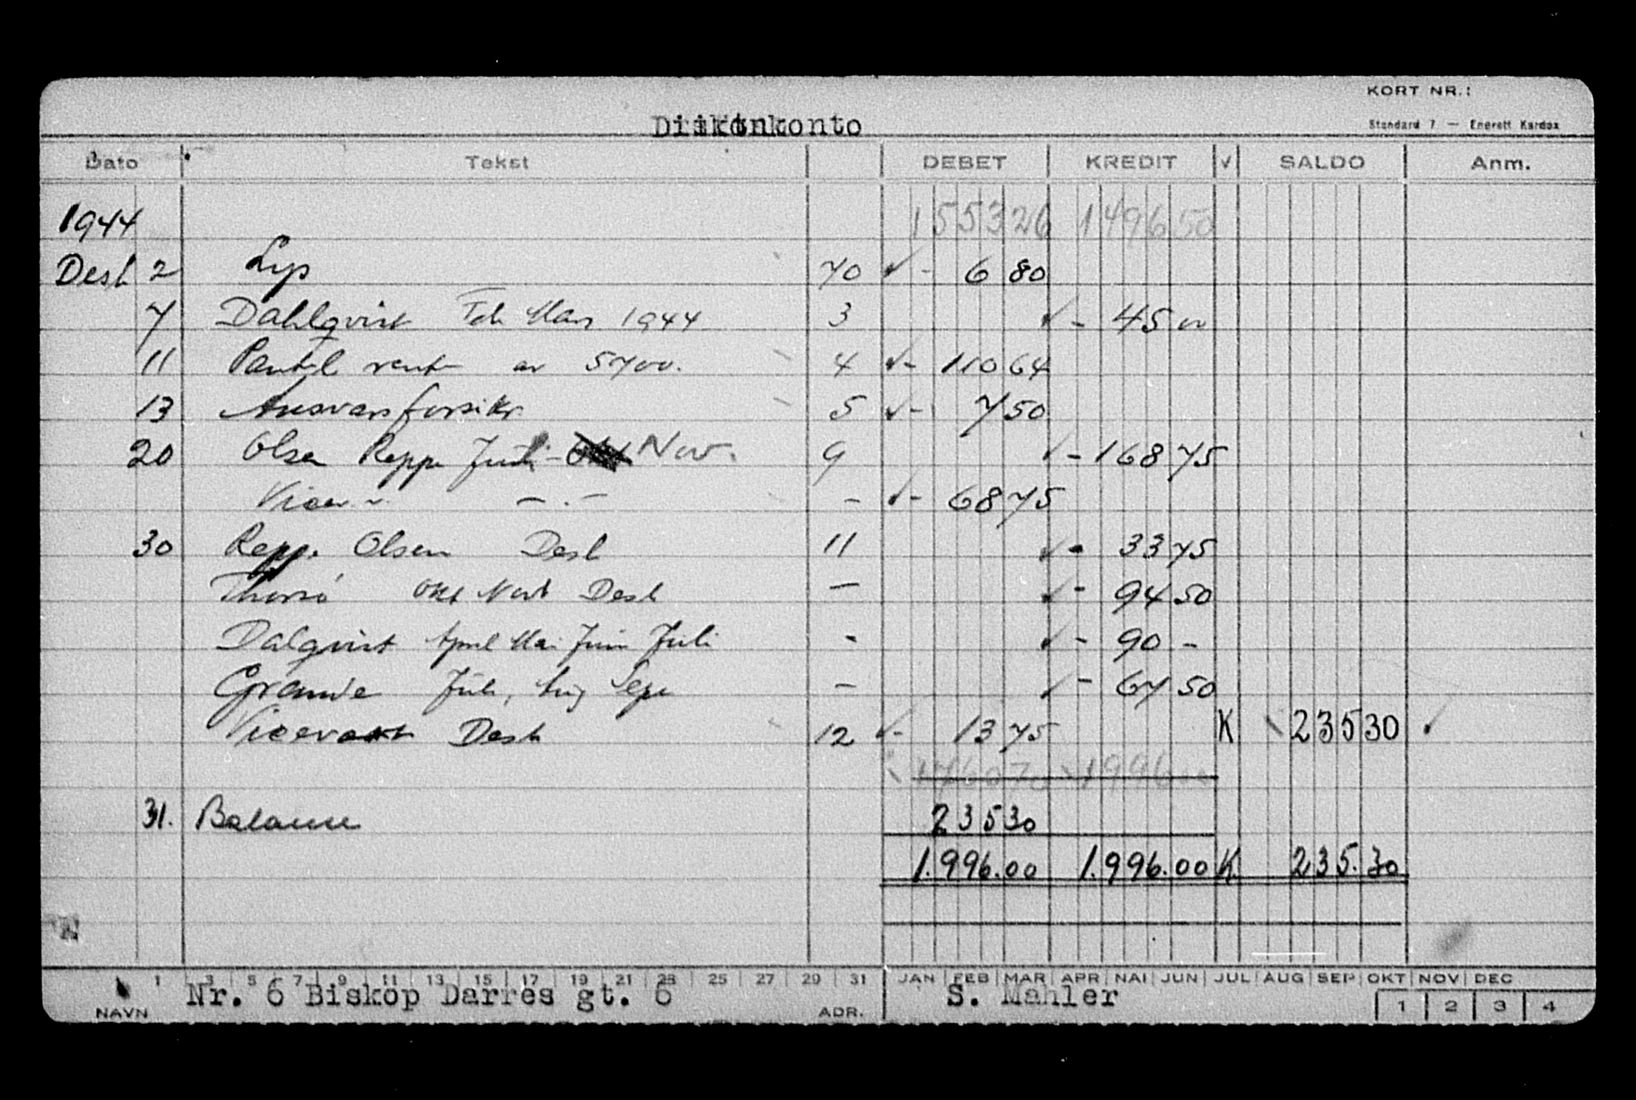 KORT NR.:
Standard 7 — Enerett Kardex
Dato Tekst DEBET KREDIT √ SALDO Anm.
1944 155326 149650
Des 2 Lys 70 √ - 6 80
7 Dahlqvist Feb Mars 1944 3 √ - 45 00
11 Pantel rent av 5700. 4 √ - 110 64
13 Ansvarsforsikr 5 √ - 7 50
20 Olsen Repp Juli - Nov. 9 √ - 168 75
Vicev. — . — - √ - 68 75
30 Repp. Olsen Des 11 √ - 33 75
Okt Nov Des — √ - 94 50
Dalqvist April Mai Juni Juli - √ - 90 -
Juli, Aug Sept — √ - 67 50
Vicevakt Des 12 √ - 13 75 K 235 30 √
1760 70 1996
31. Balanse 235 30
1.996.00 1.996.00 K. 235.30
1 3 5 7 9 11 13 15 17 19 21 23 25 27 29 31 JAN FEB MAR APR MAI JUN JUL AUG SEP OKT NOV DEC
Nr. 6 Biskop Darres gt. 6 S. Mahler
NAVN ADR. 1 2 3 4